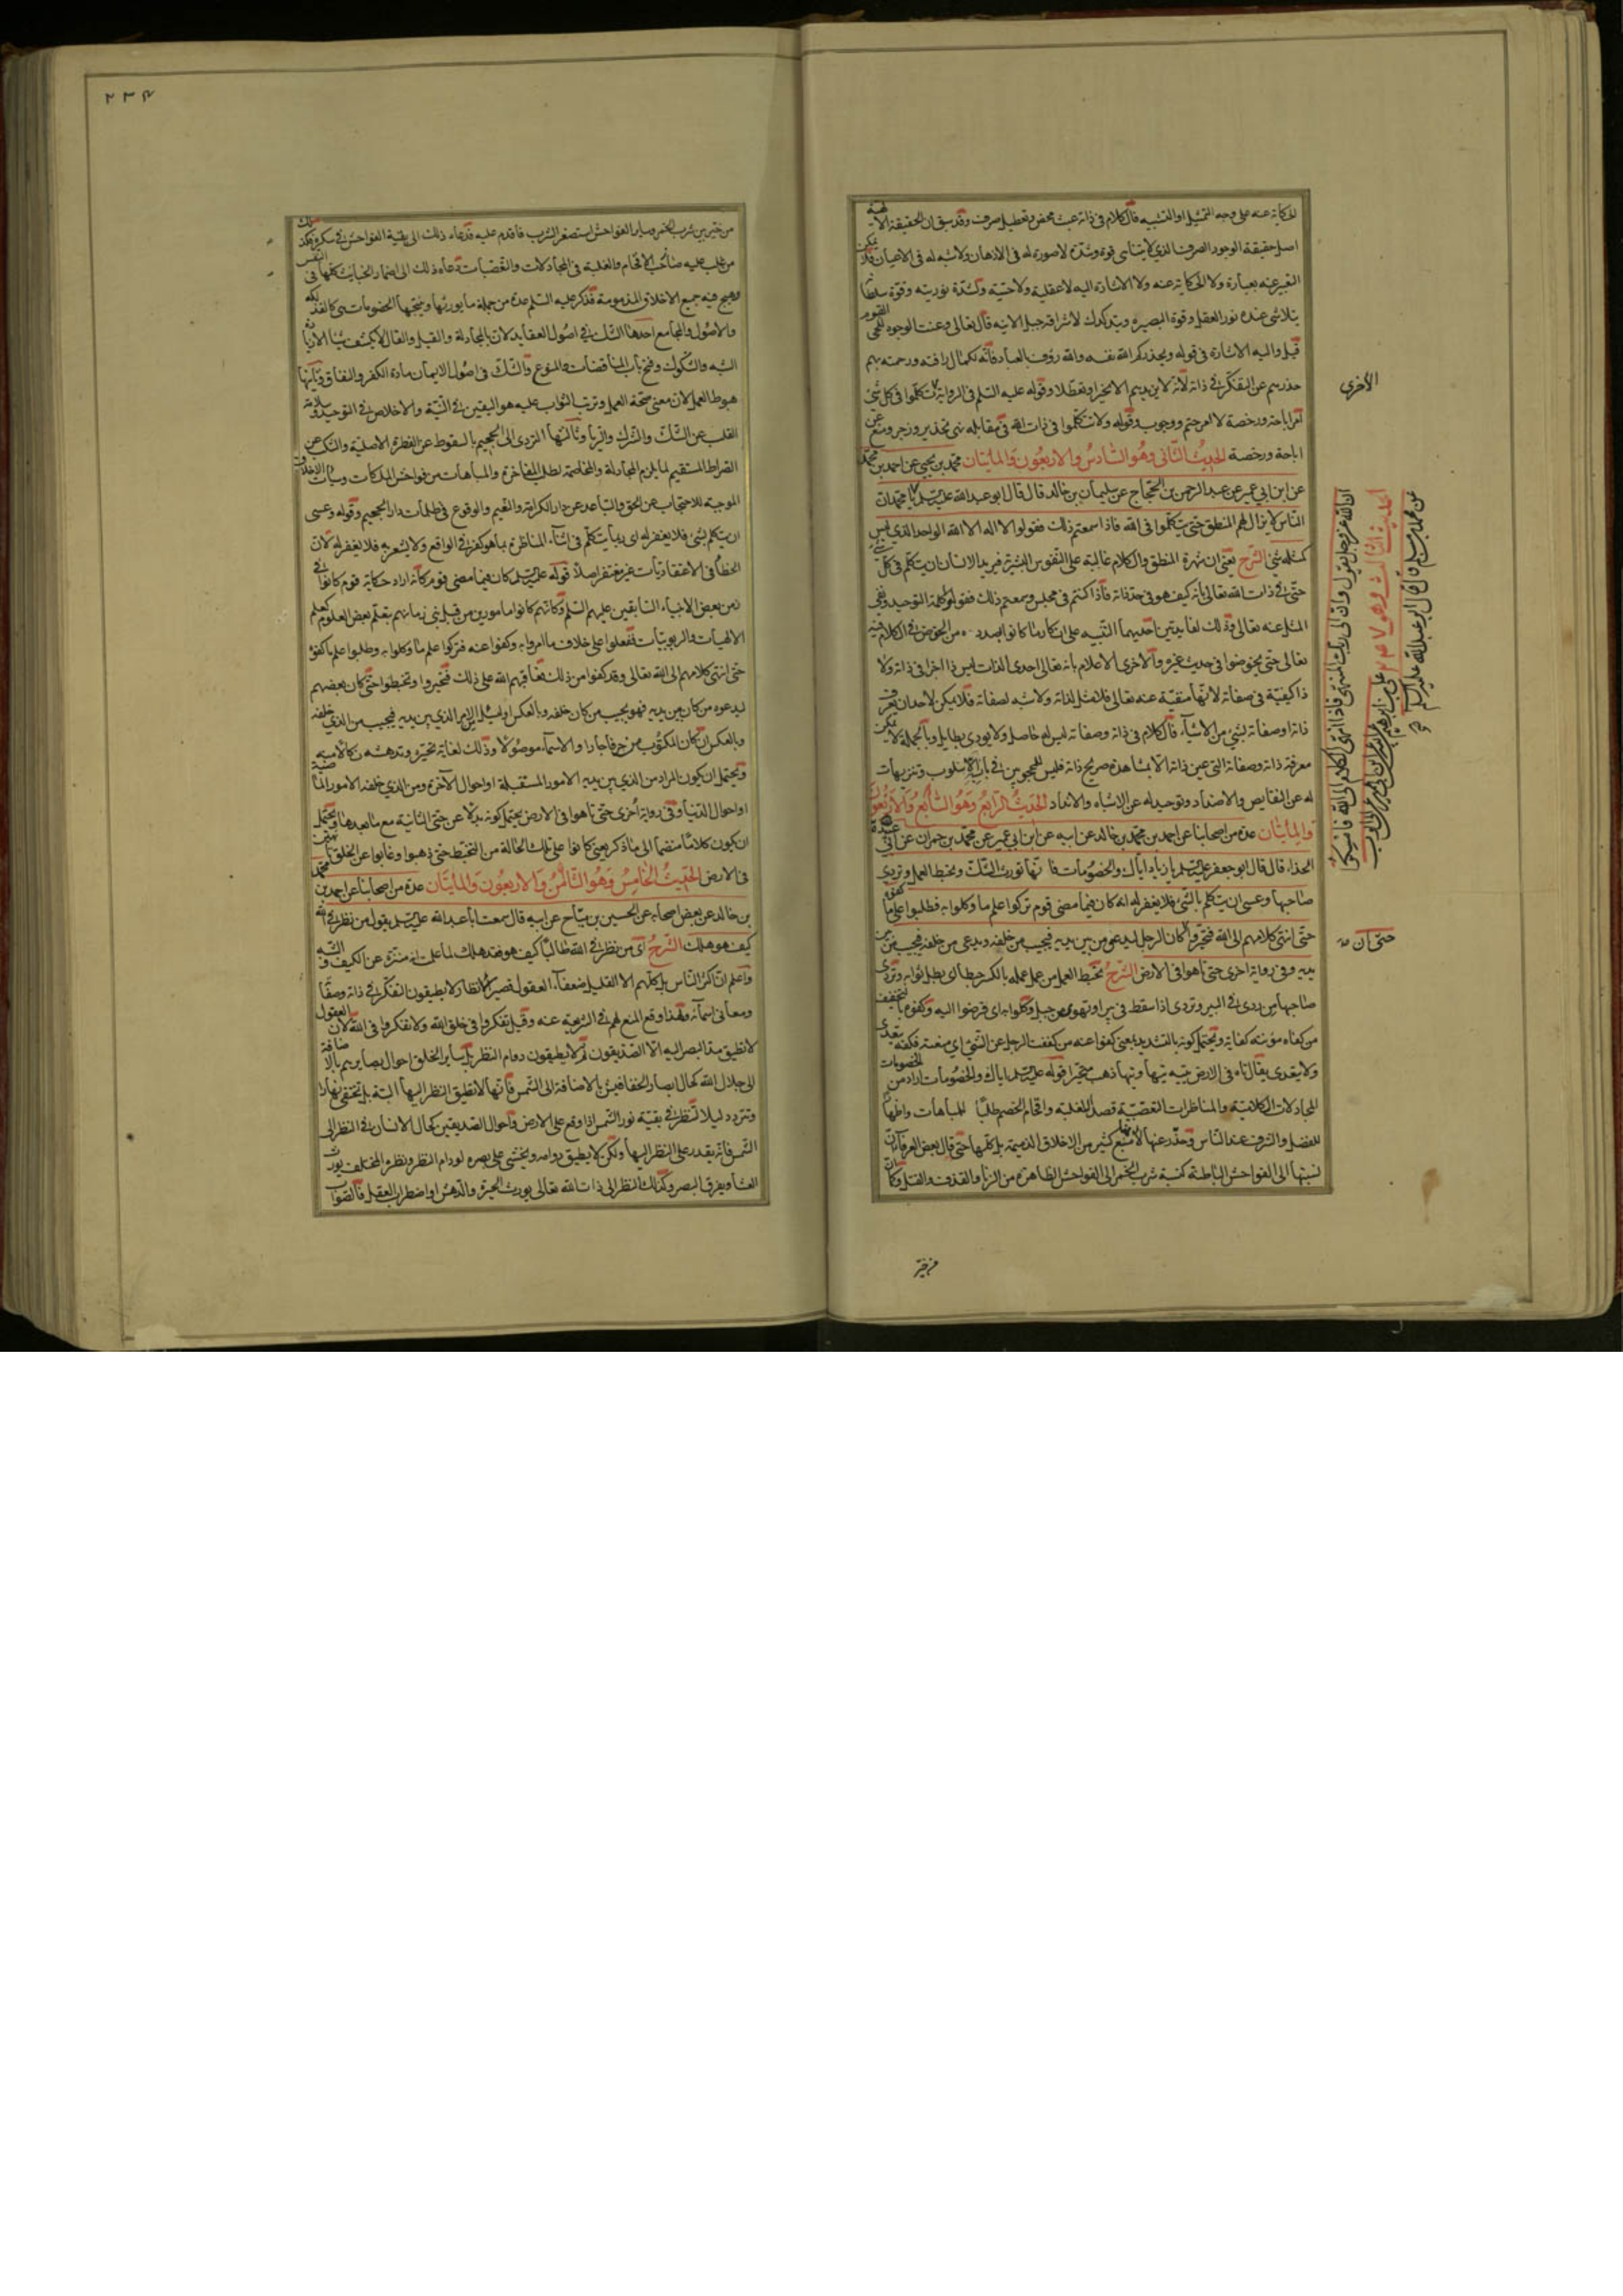 الحكاية عنه على وجه التمثيل او التشبيه فالكلام فى ذاته عبث محض وتعطيل صرف وقد سبق ان الحقيقة الالهية
اصل حقيقة الوجود الصرف الذي لا يتناهى قوة وشدة لا صورة له فى الاذهان ولا شبه له فى الاعيان فلا يمكن
التعبير عنه بعبارة ولا الحكاية عنه ولا الاشارة اليه لا عقلية ولا حسية ولشدة نوريته وقوة سلطانه
يتلاشى عنده نور العقل وقوة البصيرة ويندكدك لاشراقه جبل الانية قال تعالى وعنت الوجوه للحى القيوم
قيل واليه الاشارة فى قوله ويحذركم الله نفسه والله رؤف بالعباد فانه لكمال رافته ورحمته بهم
حذرهم عن التفكر في ذاته لانه لا يزيدهم الا تحيرا وتعطلا وقوله عليه السلم فى الرواية الاخرى تكلموا فى كل شئ
امر اباحة ورخصة لا امر حتم ووجوب وقوله ولا تتكلموا فى ذات الله فى مقابله نهى تحذير وزجر ومنع عن
اباحة ورخصة الحديث الثانى وهو السادس والاربعون والمايتان محمد بن يحيى عن احمد بن محمد
عن ابن ابى عمير عن عبد الرحمن بن الحجاج عن سليمان بن خالد قال قال ابو عبد الله عليه السلم يا محمد ان
الناس لا يزال لهم المنطق حتى يتكلموا فى الله فاذا سمعتم ذلك فقولوا لا اله الا الله الواحد الذي ليس
كمثله شئ الشرح يعنى ان شهوة المنطق والكلام غالبة على النفوس البشرية فيريد الانسان ان يتكلم فى كل شئ
حتى في ذات الله تعالى بانه كيف هو فى حد ذاته فاذا كنتم فى مجلس وسمعتم ذلك فقولوا كلمة التوحيد ونفى
المثل عنه تعالى وذلك لفايدتين احديهما التنبيه على انكار ما كانوا بصدده من الخوض في الكلام فيه
تعالى حتى يخوضوا فى حديث غيره والاخرى الاعلام بانه تعالى احدى الذات ليس ذا اجزا فى ذاته ولا
ذا كيفية فى صفاته لانها منفية عنه تعالى فلا مثل لذاته ولا شبه لصفاته فلا يمكن لاحد ان يعرف
ذاته او صفاته بشئ من الاشياء فالكلام فى ذاته وصفاته ليس له حاصل ولا يودى بطايل وبالجملة لا يمكن
معرفة ذاته وصفاته التى عين ذاته الا بمشاهدة صريح ذاته فليس للمحجوبين في باب الا سلوب وتنزيهات
له عن النقايص والاضداد وتوحيد له عن الاشباه والانداد الحديث الرابع وهو السابع والاربعون
والمايتان عدة من اصحابنا عن احمد بن محمد بن خالد عن ابيه عن ابن ابي عمير عن محمد بن حمران عن ابي عبيدة
الحذاء قال قال ابو جعفر عليه السلم يا زياد اياك والخصومات فانها تورث الشك وتحبط العمل وتردى
صاحبها وعسى ان يتكلم بالشئ فلا يغفر له انه كان فيما مضى قوم تركوا علم ما وكلوا به وطلبوا علم ما كفوه
حتى انتهى كلامهم الى الله فتحيروا كان الرجل ليدعى من بين يديه فيجيب من خلفه ويدعى من خلفه فيجيب من بين
يديه وفى رواية اخرى حتى تاهوا فى الارض الشرح تحبط العمل من عمل عمله بالكسر حبطا اى بطل ثوابه وتردى
صاحبها من ردى في البير وتردى اذا سقط فى بير او تهور من جبل وكلوا به اى فوضوا اليه وكفوه بالتخفيف
من كفاه مؤنته كفاية ويحتمل كونه بالتشديد بمعنى كفوا عنه من كففت الرجل عن الشئ اى منعته فكفته يتعدى
ولا يتعدى يقال تاه فى الارض يتيه تيها وتيهانا ذهب متحيرا قوله عليه السلم اياك والخصومات اراد من الخصومات
المجادلات الكلامية والمناظرات التعصبية قصدا للغلبة وافحام الخصم طلبا للمباهات واظهارا
للفضل والشرف عند الناس وحذر عنها لانها منبع كثير من الاخلاق الذميمة بل كلها حتى قال بعض العرفاء ان
نسبتها الى الفواحش الباطنة كنسبة شرب الخمر الى الفواحش الظاهرة من الزنا والقذف والقتل وكما ان
الاخرى
الحديث الثالث وهو ٢٤٧ على بن ابراهيم
عن محمد بن مسلم قال قال ابو عبد الله عليه السلم
ان الله عز وجل يقول وان الى ربك المنتهى فاذا انتهى الكلام الى الله فامسكوا
حتى ان
من خير
٢٣٤
من خير بين شرب الخمر وساير الفواحش استصغر الشرب فاقدم عليه فدعاه ذلك الى بقية الفواحش في سكره فكذلك
من غلب عليه حب الافحام والغلبة فى المجادلات والتعصبات دعاه ذلك الى اضمار الخبائث كلها فى النفس
وهيج فيه جميع الاخلاق المذمومة فذكر عليه السلم عدة من جملة ما يورثها وينتجها الخصومات
والاصول والمجامع احدها الشك في اصول العقايد لان بالمجادلة والقيل والقال لا يكشف شيئا الا زيادة
الشبه والشكوك وفتح باب المناقضات والمنوع والشك فى اصول الايمان مادة الكفر والنفاق وثانيها
حبوط العمل لان معنى صحة العمل وترتب الثواب عليه هو اليقين في النية والاخلاص في التوحيد وسلامة
القلب عن الشك والشرك والريا وثالثها التردى الى الجحيم بالسقوط عن الفطرة الاصلية والتنكب عن
الصراط المستقيم لما يلزم المجادلة والمخاصمة لطلب المفاخرة والمباهات من فواحش الملكات وسيات الاخلاق
الموجبة للاحتجاب عن الحق والتباعد عن دار الكرامة والنعيم والوقوع فى ظلمات دار الجحيم وقوله وعسى
ان يتكلم بشئ فلا يغفر له اى ربما يتكلم فى اثناء المناظرة بما هو كفر في الواقع ولا يشعر به فلا يغفر له لان
الخطأ فى الاعتقاديات غير مغتفر اصلا قوله عليه السلم كان فيما مضى قوم كانه اراد حكاية قوم كانوا في
زمن بعض الانبياء السابقين عليهم السلم وكانهم كانوا مامورين من قبل نبى زمانهم بتعلم بعض العلوم كعلم
الالهيات والربوبيات ففعلوا على خلاف ما امروا به وكفوا عنه فتركوا علم ما وكلوا به وطلبوا علم ما كفوه
حتى انتهى كلامهم الى الله تعالى وقد كفوا من ذلك فعاقبهم الله على ذلك فتحيروا وتخبطوا حتى كان بعضهم
ليدعوه من كان بين يديه فهو يجيب من كان خلفه وبالعكس
وبالعكس ان كان المكتوب من حرفا جارا والاسماء موصولا وذلك لغاية تحيره وتدهشه
ويحتمل ان يكون المراد من الذي بين يديه الامور المستقبلة او احوال الآخرة ومن الذي خلفه الامور الماضية
او احوال الدنيا وفى رواية اخرى حتى تاهوا فى الارض يحتمل كونه بدلا عن حتى الثانية مع ما بعدها ويحتمل
ان يكون كلاما منضما الى ما ذكر يعنى كانوا على تلك الحالة من التخبط حتى ذهبوا وغابوا عن الخلق تايهين
فى الارض الحديث الخامس وهو الثامن والاربعون والمايتان عدة من اصحابنا عن احمد بن محمد
بن خالد عن بعض اصحابه عن الحسين بن مياح عن ابيه قال سمعت ابا عبد الله عليه السلم يقول من نظر في الله
كيف هو هلك الشرح اى من نظر في الله طالبا كيف هو فقد هلك لما علمت انه منزه عن الكيف والشبه
واعلم ان اكثر الناس بل كلهم الا القليل ضعفاء العقول قصير الانظار لا يطيقون التفكر في ذاته وصفاته
ومعانى اسمائه ولهذا وقع المنع لهم في الشريعة عنه وقيل تفكروا فى خلق الله ولا تفكروا فى الله لان العقول
لا تطيق مد البصر اليه الا الصديقون ثم لا يطيقون دوام النظر بل ساير الخلق احوال بصايرهم بالاضافة
الى جلال الله كحال ابصار الخفافيش بالاضافة الى الشمس فانها لا تطيق النظر اليها البتة بل تختفى نهارا
وتتردد ليلا لتنظر في بقية نور الشمس اذا وقع على الارض واحوال الصديقين كحال الانسان في النظر الى
الشمس فانه يقدر على النظر اليها ولكن لا يطيق دوامه ويخشى على بصره لو دام النظر ونظره المختلف يورث
العشا ويفرق البصر وكذلك النظر الى ذات الله تعالى يورث الحيرة والدهش او اضطراب العقل فالصواب